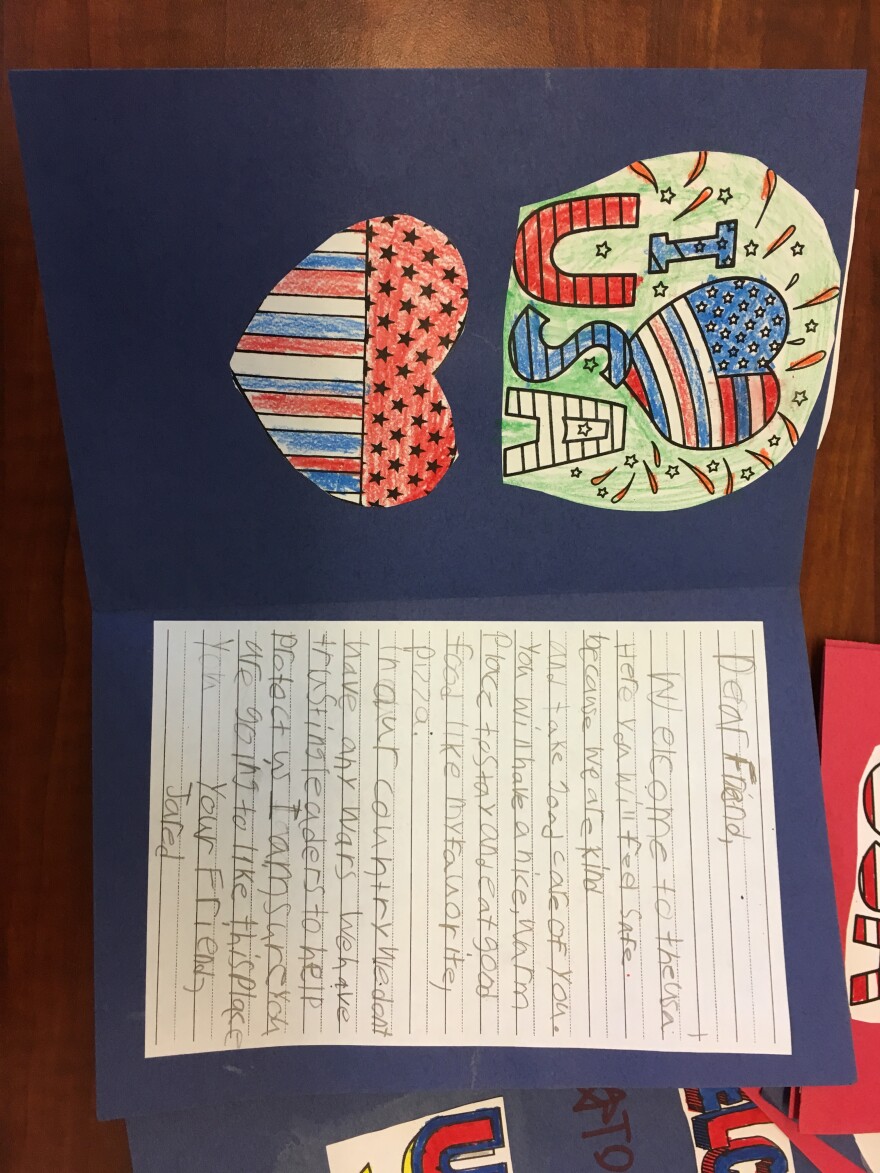 I
USA
Dear Friend,
Welcome to the usa
Here you will feel safe.
because we are kind
and take good care of you.
You will have a nice, warm
place to stay and eat good
food like my favorite,
pizza.
In our country we dont
have any wars. We have
trusting leaders to help
protect us I am sure you
are going to like this place
Your Friend,
Jared